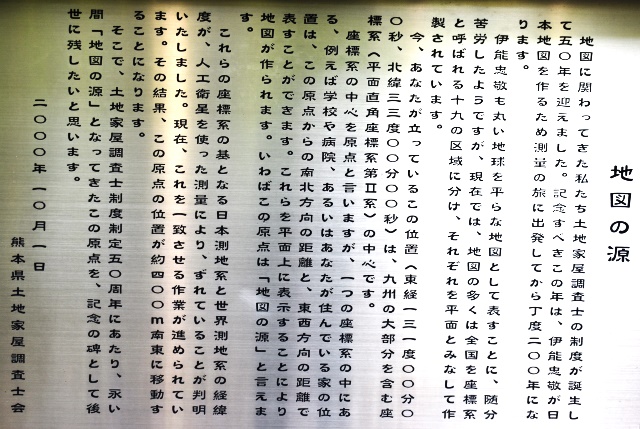 地図の源
地図に関わってきた私たち土地家屋調査士の制度が誕生し
て五〇年を迎えました。記念すべきこの年は、伊能忠敬が日
本地図を作るため測量の旅に出発してから丁度二〇〇年にな
ります。
伊能忠敬も丸い地球を平らな地図として表すことに、随分
苦労したようですが、現在では、地図の多くは全国を座標系
と呼ばれる十九の区域に分け、それぞれを平面とみなして作
製されています。
今、あなたが立っているこの位置（東経一三一度〇〇分〇
〇秒、北緯三三度〇〇分〇〇秒）は、九州の大部分を含む座
標系（平面直角座標系第Ⅱ系）の中心です。
座標系の中心を原点と言いますが、一つの座標系の中にあ
る、例えば学校や病院、あるいはあなたが住んでいる家の位
置は、この原点からの南北方向の距離と、東西方向の距離で
表すことができます。これらを平面上に表示することにより
地図が作られます。いわばこの原点は「地図の源」と言えま
す。
これらの座標系の基となる日本測地系と世界測地系の経緯
度が、人工衛星を使った測量により、ずれていることが判明
いたしました。現在、これを一致させる作業が進められてい
ます。その結果、この原点の位置が約四〇〇ｍ南東に移動す
ることになります。
そこで、土地家屋調査士制度制定五〇周年にあたり、永い
間「地図の源」となってきたこの原点を、記念の碑として後
世に残したいと思います。
二〇〇〇年一〇月一日
熊本県土地家屋調査士会